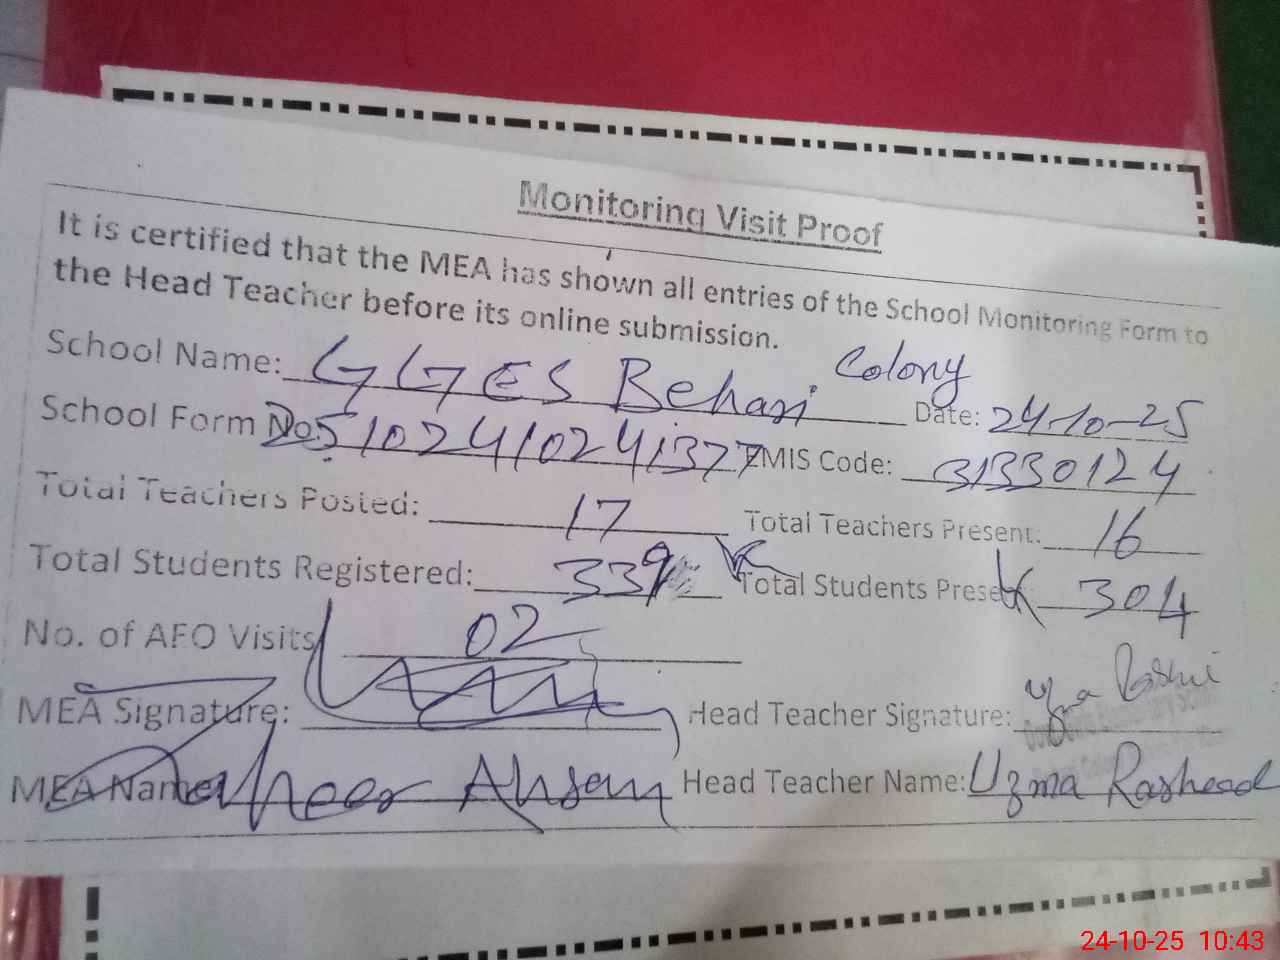 Monitoring Visit Proof
It is certified that the MEA has shown all entries of the School Monitoring Form to
the Head Teacher before its online submission.
School Name: GGES Behari Colony Date: 24-10-25
School Form No. 5102410241377 EMIS Code: 31330124
Total Teachers Posted: 17 Total Teachers Present: 16
Total Students Registered: 339 Total Students Present 304
No. of AEO Visits 02
MEA Signature: Head Teacher Signature: Uzma Rashid
MEA Name Ahsan Head Teacher Name: Uzma Rasheed
24-10-25 10:43